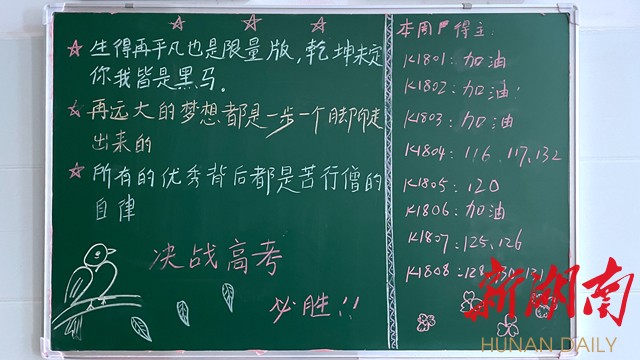 生得再平凡也是限量版,乾坤未定
你我皆是黑马.
再远大的梦想都是一步一个脚印走
出来的
所有的优秀背后都是苦行僧的
自律
决战高考
必胜!!
得主:
K1801:加油
K1802:加油
K1803:加油
K1804:116、117、132
K1805:120
K1806:加油
K1807:125、126
K1808:
新湖南
HUNAN DAILY